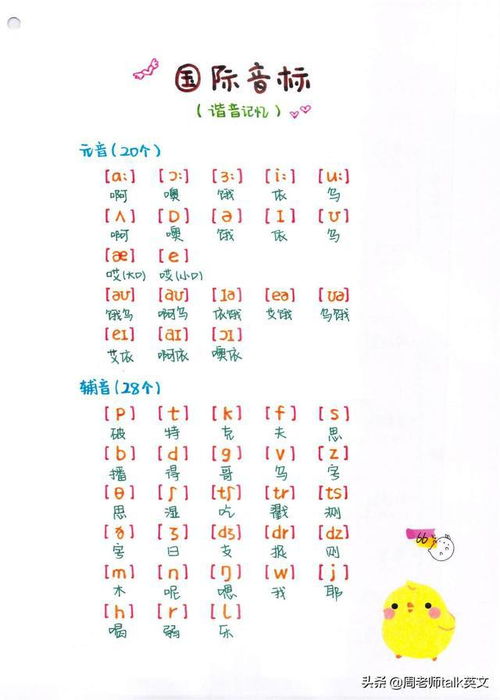 国际音标
(谐音记忆)
元音(20个)
[ɑː] [ɔː] [ɜː] [iː] [uː]
啊 噢 饿 依 乌
[ʌ] [ɒ] [ə] [ɪ] [ʊ]
啊 噢 饿 依 乌
[æ] [e]
哎(大口) 哎(小口)
[əʊ] [aʊ] [ɪə] [eə] [ʊə]
饿乌 啊乌 依饿 艾饿 乌饿
[eɪ] [aɪ] [ɔɪ]
艾依 啊依 噢依
辅音(28个)
[p] [t] [k] [f] [s]
破 特 克 夫 思
[b] [d] [g] [v] [z]
播 得 哥 乌 字
[θ] [ʃ] [tʃ] [tr] [ts]
思 湿 吃 戳 测
[ð] [ʒ] [dʒ] [dr] [dz]
字 日 支 捉 则
[m] [n] [ŋ] [w] [j]
木 呢 嗯 我 耶
[h] [r] [l]
喝 弱 乐
66
头条 @周老师talk英文